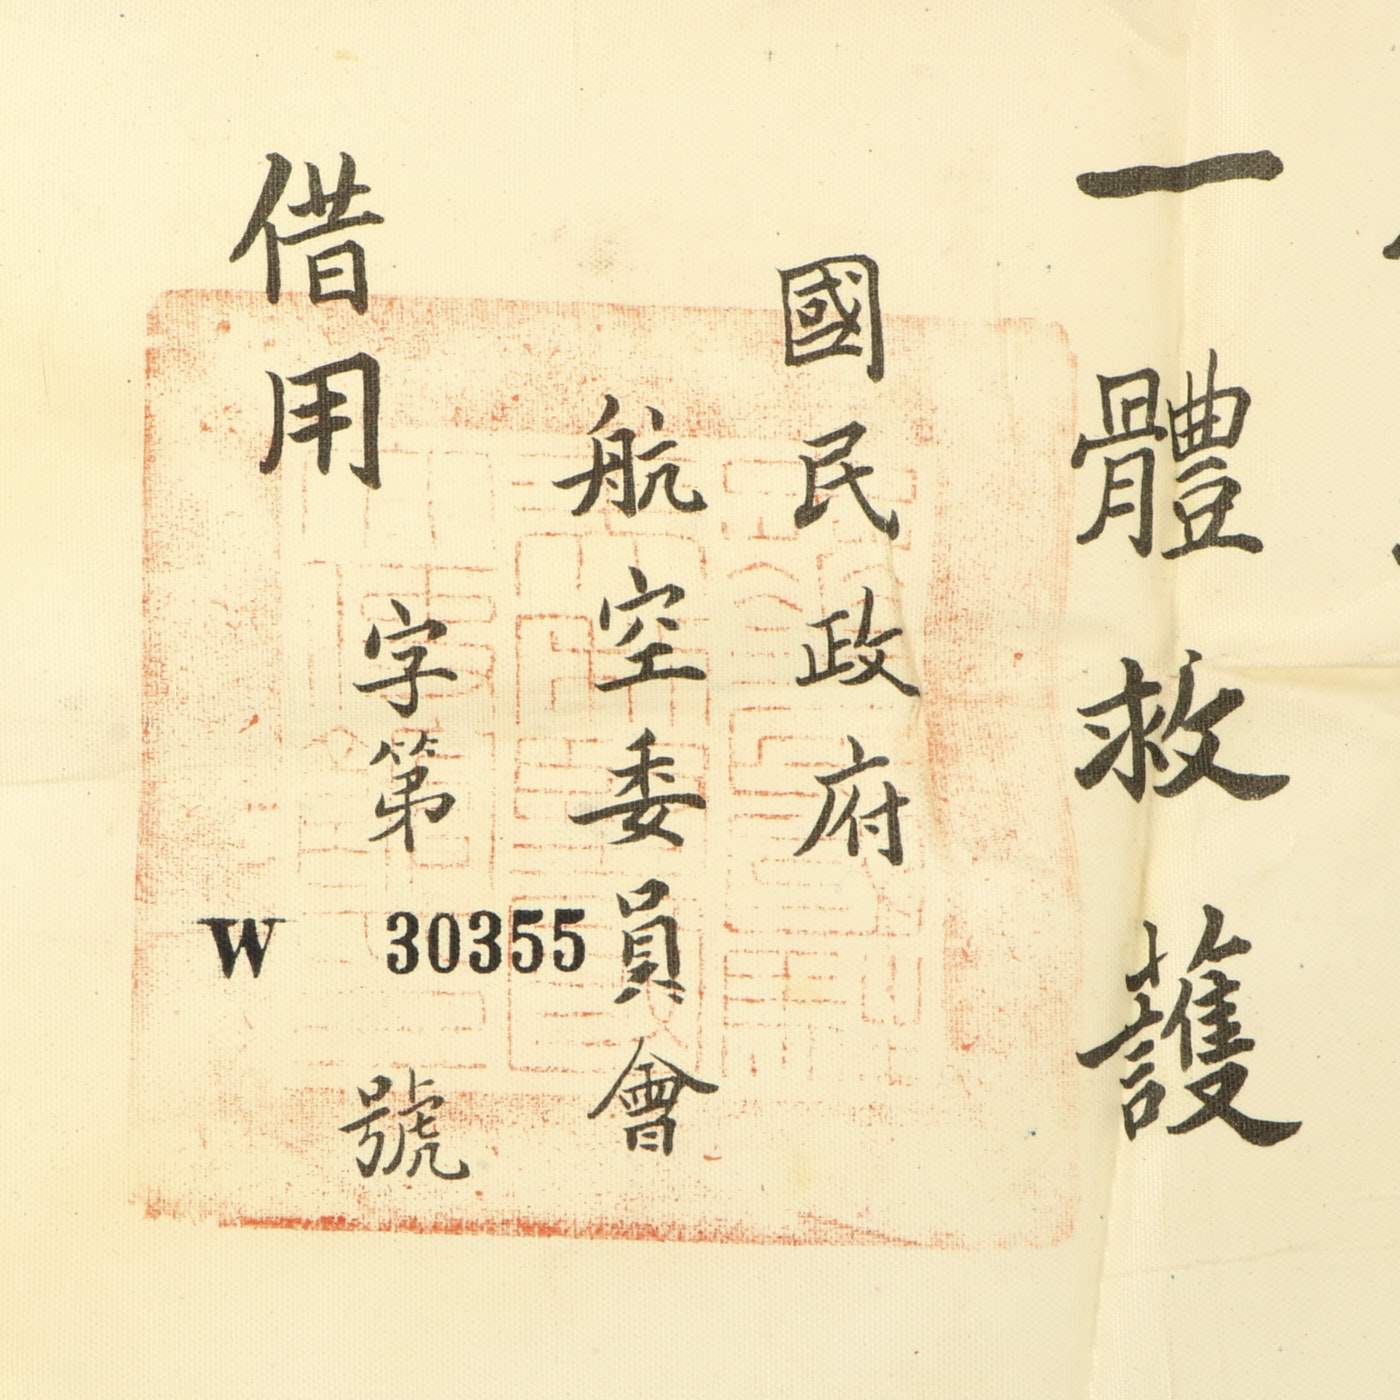 一體救護
國民政府
航空委員會
借用
字第
W 30355
號